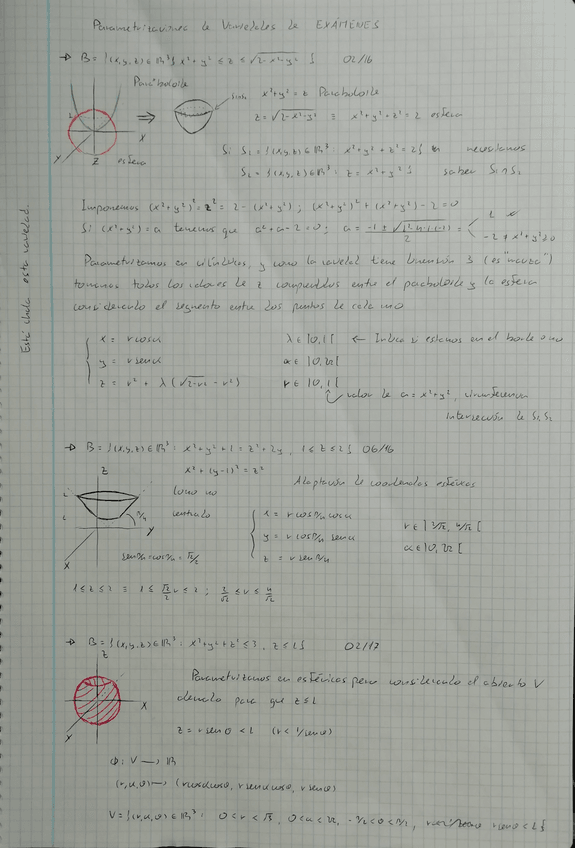 Parametrizaciones de Variedades de EXÁMENES
→ B = {(x,y,z) ∈ ℝ³ : x²+y² ≤ z ≤ √2-x²-y² } 02/16
Paraboloide
x²+y² = z Paraboloide
z = √2-x²-y² ≡ x²+y²+z² = 2 esfera
X
Y
Z esfera
Si S₁ = {(x,y,z) ∈ ℝ³ : x²+y²+z² = 2} necesitamos
S₂ = {(x,y,z) ∈ ℝ³ : z = x²+y²} saber S₁∩S₂
Imponemos (x²+y²)² = z² = 2-(x²+y²) ; (x²+y²)² + (x²+y²) - 2 = 0
Si (x²+y²) = a tenemos que a²+a-2 = 0 ; a =
Parametrizamos en cilíndricas, y como la variedad tiene dimensión 3 (es "maciza")
tomamos todos los valores de z comprendidos entre el paraboloide y la esfera
considerando el segmento entre dos puntos de cada uno
Esté chula esta variedad.
x = r cosα λ ∈ ]0,1[ ← Indica si estamos en el borde o no
y = r senα α ∈ ]0,2π[
z = r² + λ(√2-r² - r²) r ∈ ]0,1[
valor de a = x²+y², circunferencia
intersección de S₁, S₂
→ B = {(x,y,z) ∈ ℝ³ : x²+y²+1 = z²+2y, 1≤z≤2} 06/16
Z x²+(y-1)² = z²
Adaptación de coordenadas esféricas
Cono no
centrado
π/4
Y
X
x = r cosπ/4 cosα r ∈ ]2/√2, 4/√2[
y = r cosπ/4 senα α ∈ ]0,2π[
z = r senπ/4
senπ/4 = cosπ/4 = √2/2
1≤z≤2 ≡ 1 ≤ √2/2 r ≤ 2 ; 2/√2 ≤ r ≤ 4/√2
→ B = {(x,y,z) ∈ ℝ³ : x²+y²+z² ≤ 3, z≤1} 02/17
Z
X
Y
Parametrizamos en esféricas pero considerando el abierto V
de modo para que z≤1
z = r senθ < 1 (r < 1/senθ)
Φ: V → B
(r,α,θ) → (r cosα cosθ, r senα cosθ, r senθ)
V = {(r,α,θ) ∈ ℝ³ : 0<r<√3, 0<α<2π, -π/2<θ<π/2, r senθ < 1}